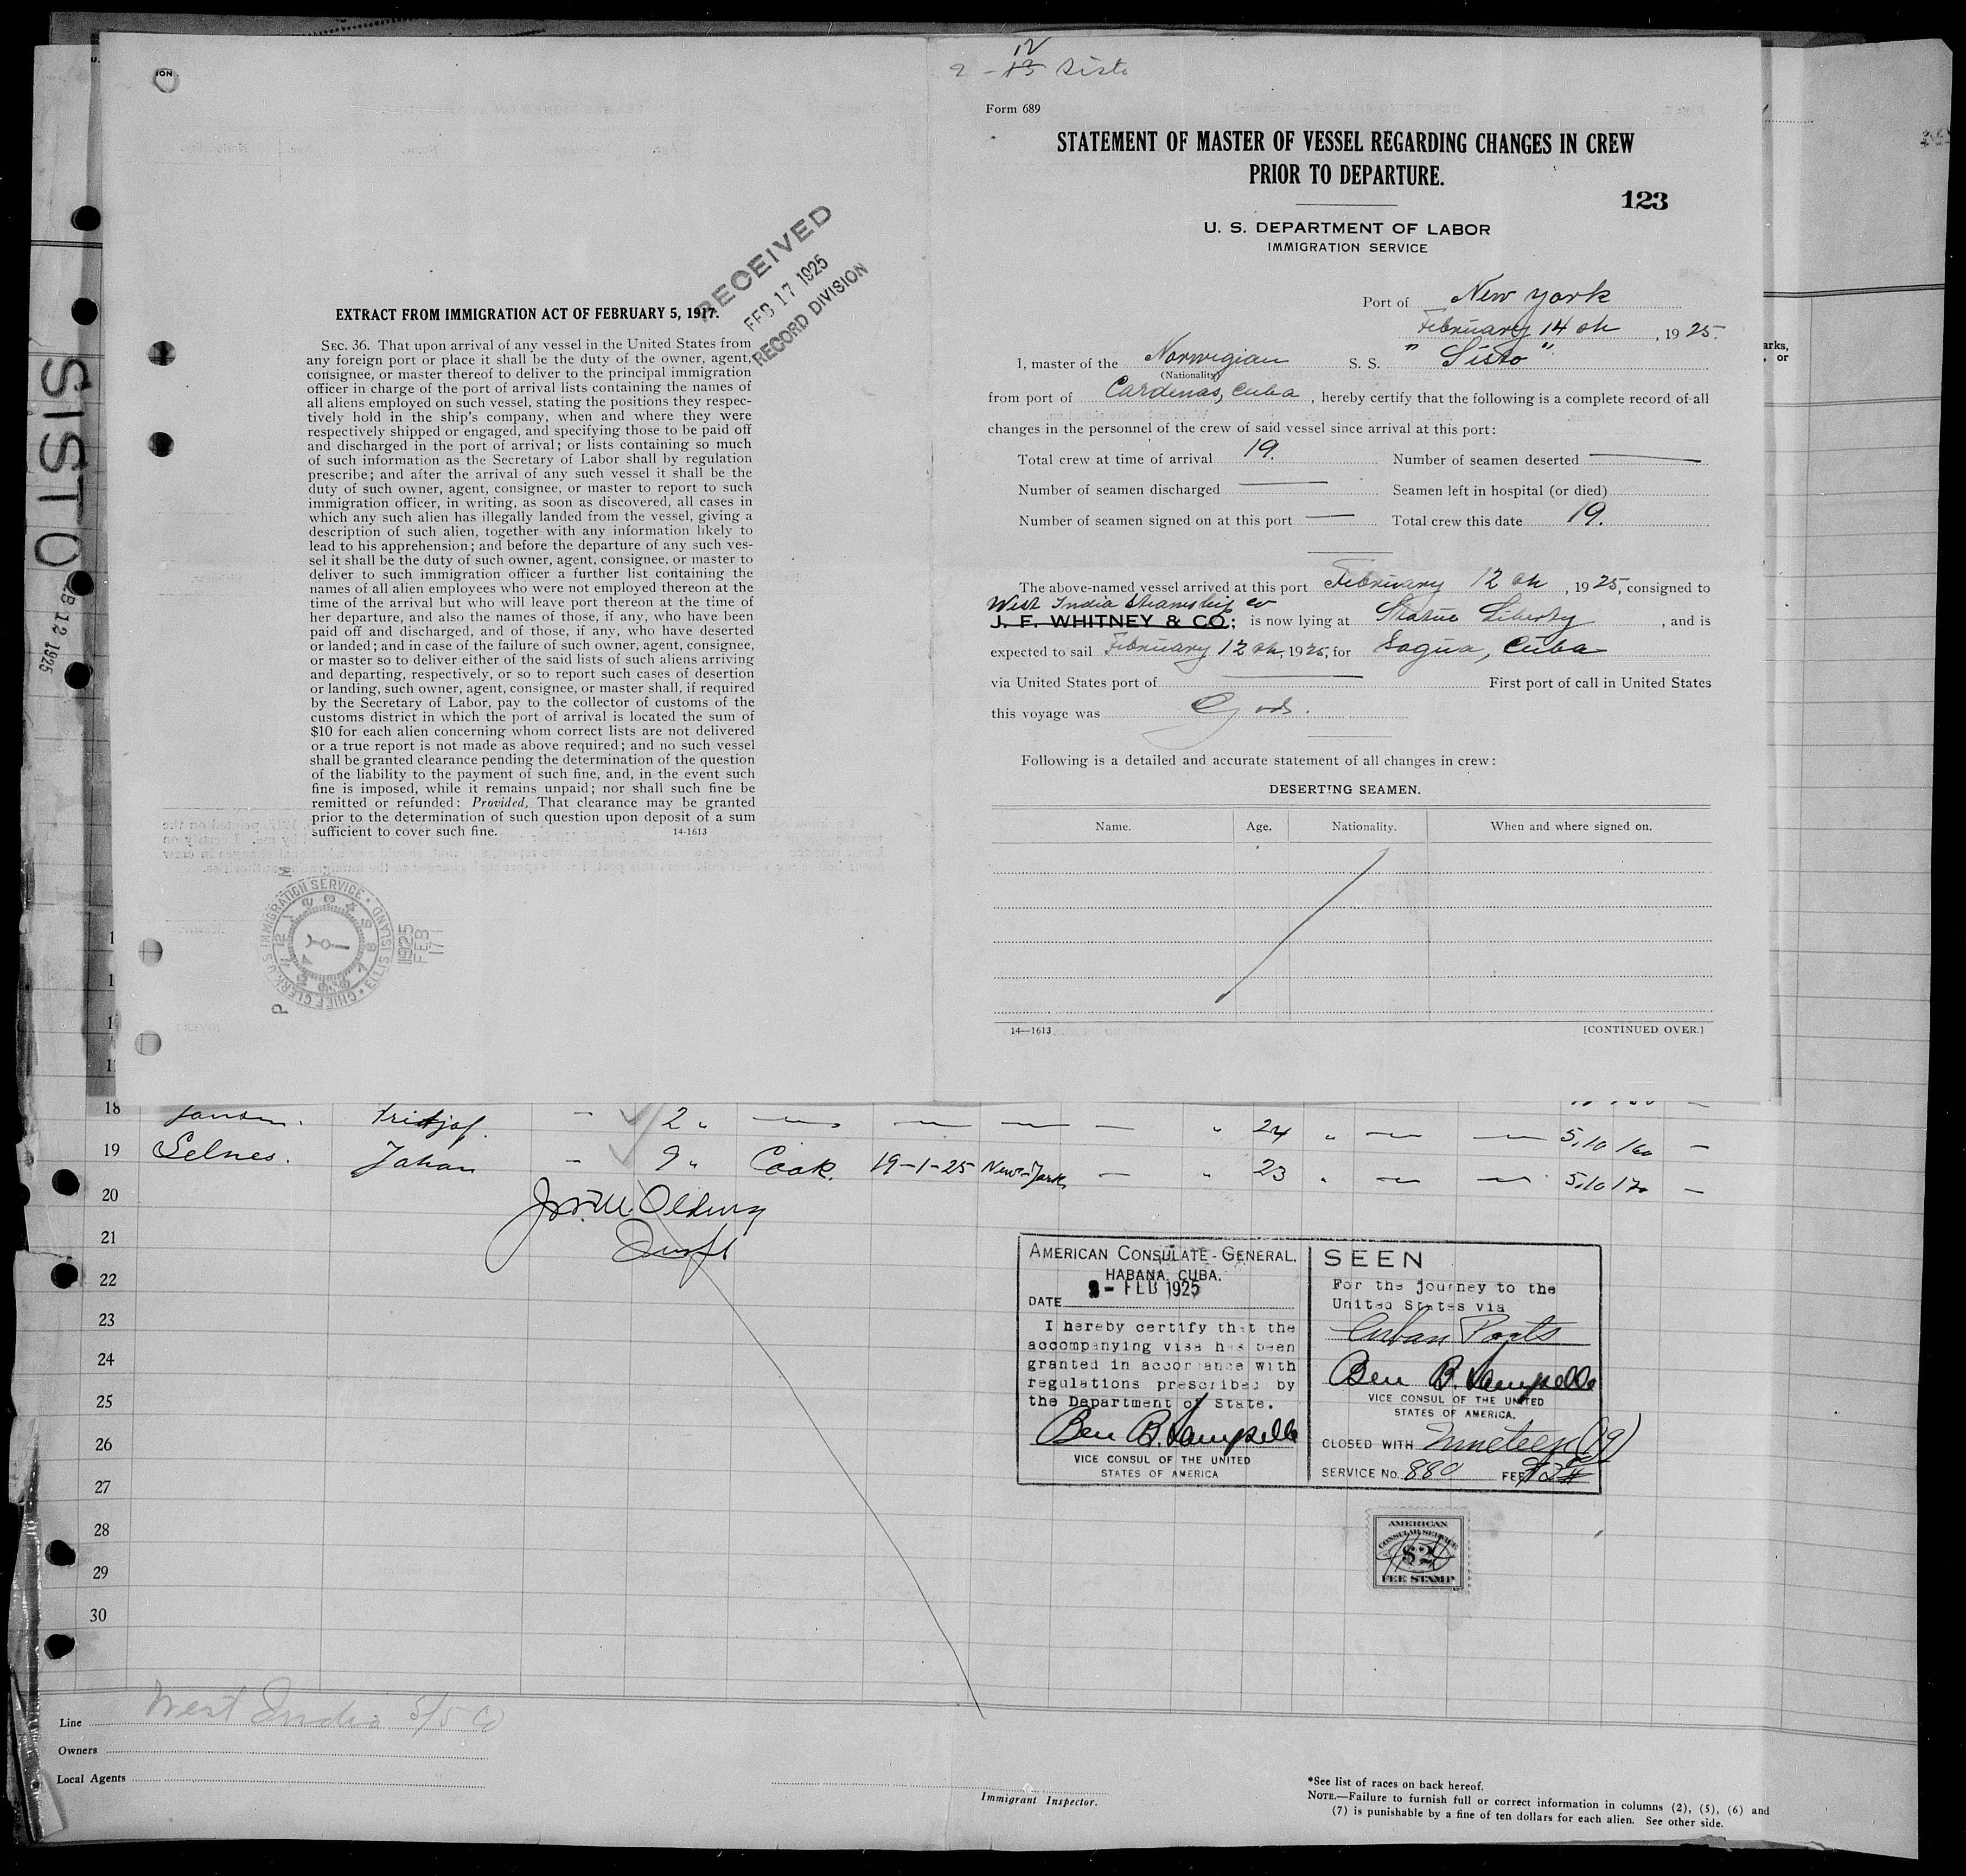 12
2 - 13 Sisto
Form 689
STATEMENT OF MASTER OF VESSEL REGARDING CHANGES IN CREW
PRIOR TO DEPARTURE.
123
U. S. DEPARTMENT OF LABOR
IMMIGRATION SERVICE
Port of New York
February 14 th, 1925.
I, master of the Norwegian S. S. "Sisto"
(Nationality)
from port of Cardenas, Cuba, hereby certify that the following is a complete record of all
changes in the personnel of the crew of said vessel since arrival at this port:
Total crew at time of arrival 19. Number of seamen deserted —
Number of seamen discharged — Seamen left in hospital (or died)
Number of seamen signed on at this port — Total crew this date 19.
The above-named vessel arrived at this port February 12 th, 1925, consigned to
West India Steamship Co
J. F. WHITNEY & CO.; is now lying at Statue Liberty, and is
expected to sail February 12 th, 1925, for Sagua, Cuba
via United States port of — First port of call in United States
this voyage was
Following is a detailed and accurate statement of all changes in crew:
DESERTING SEAMEN.
Name. Age. Nationality. When and where signed on.
14—1613 [CONTINUED OVER.]
RECEIVED
FEB 17 1925
RECORD DIVISION
EXTRACT FROM IMMIGRATION ACT OF FEBRUARY 5, 1917.
SEC. 36. That upon arrival of any vessel in the United States from
any foreign port or place it shall be the duty of the owner, agent,
consignee, or master thereof to deliver to the principal immigration
officer in charge of the port of arrival lists containing the names of
all aliens employed on such vessel, stating the positions they respec-
tively hold in the ship's company, when and where they were
respectively shipped or engaged, and specifying those to be paid off
and discharged in the port of arrival; or lists containing so much
of such information as the Secretary of Labor shall by regulation
prescribe; and after the arrival of any such vessel it shall be the
duty of such owner, agent, consignee, or master to report to such
immigration officer, in writing, as soon as discovered, all cases in
which any such alien has illegally landed from the vessel, giving a
description of such alien, together with any information likely to
lead to his apprehension; and before the departure of any such ves-
sel it shall be the duty of such owner, agent, consignee, or master to
deliver to such immigration officer a further list containing the
names of all alien employees who were not employed thereon at the
time of the arrival but who will leave port thereon at the time of
her departure, and also the names of those, if any, who have been
paid off and discharged, and of those, if any, who have deserted
or landed; and in case of the failure of such owner, agent, consignee,
or master so to deliver either of the said lists of such aliens arriving
and departing, respectively, or so to report such cases of desertion
or landing, such owner, agent, consignee, or master shall, if required
by the Secretary of Labor, pay to the collector of customs of the
customs district in which the port of arrival is located the sum of
$10 for each alien concerning whom correct lists are not delivered
or a true report is not made as above required; and no such vessel
shall be granted clearance pending the determination of the question
of the liability to the payment of such fine, and, in the event such
fine is imposed, while it remains unpaid; nor shall such fine be
remitted or refunded: Provided, That clearance may be granted
prior to the determination of such question upon deposit of a sum
sufficient to cover such fine. 14-1613
CHIEF CLERK U.S. IMMIGRATION SERVICE • ELLIS ISLAND •
1925
FEB
17
SISTO
FEB 12 1925
18 Jansen. Fritjof. — 2 " — — — — " 24 " — — 5,10 160 —
19 Selnes. Johan — 9 " Cook. 19-1-25 New-York — " 23 " — — 5,10 170 —
20
21
22
23
24
25
26
27
28
29
30
AMERICAN CONSULATE-GENERAL,
HABANA, CUBA.
DATE - FEB 1925
I hereby certify that the
accompanying visa has been
granted in accordance with
regulations prescribed by
the Department of State.
Ben B.
VICE CONSUL OF THE UNITED
STATES OF AMERICA
SEEN
For the journey to the
United States via
Cuban Ports
Ben B.
VICE CONSUL OF THE UNITED
STATES OF AMERICA.
CLOSED WITH Nineteen (19)
SERVICE No. 880 FEE $2
AMERICAN
CONSULAR SERVICE
$2
FEE STAMP
Line West India S/S Co
Owners
Local Agents
Immigrant Inspector.
*See list of races on back hereof.
NOTE.—Failure to furnish full or correct information in columns (2), (5), (6) and
(7) is punishable by a fine of ten dollars for each alien. See other side.